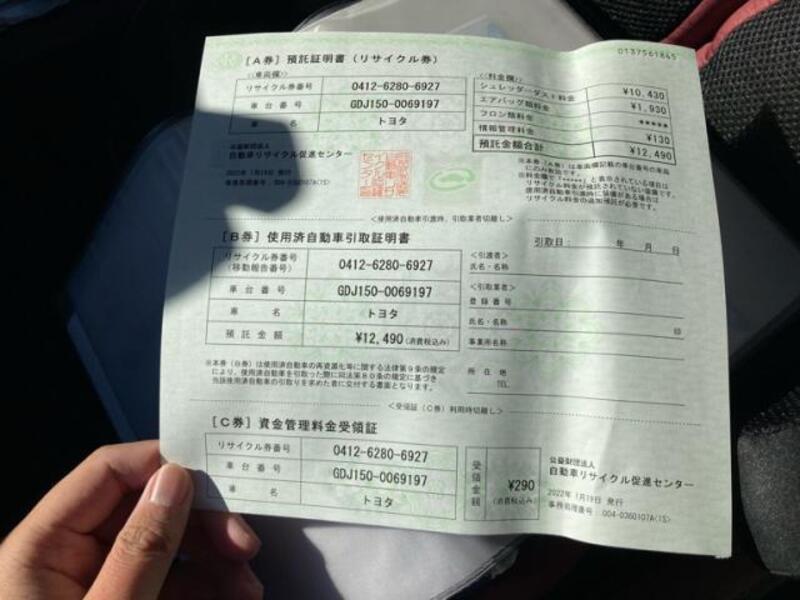 0137561845
[A券] 預託証明書（リサイクル券）
<車両欄>
リサイクル券番号 0412-6280-6927
車台番号 GDJ150-0069197
車名 トヨタ
<料金欄>
シュレッダーダスト料金 ¥10,430
エアバッグ類料金 ¥1,930
フロン類料金 *****
情報管理料金 ¥130
預託金額合計 ¥12,490
公益財団法人
自動車リサイクル促進センター
2022年 1月19日 発行
事務処理番号：004-0360107A(1S)
※本券（A券）は車両欄記載の車台番号の車両
にのみ有効です。
※料金欄で「*****」と表示されている項目は
リサイクル料金が預託されていない装備です。
使用済自動車引渡時に装備がある場合は
リサイクル料金の追加預託が必要です。
<使用済自動車引渡時、引取業者切離し>
[B券] 使用済自動車引取証明書
引取日： 年 月 日
リサイクル券番号
（移動報告番号） 0412-6280-6927
車台番号 GDJ150-0069197
車名 トヨタ
預託金額 ¥12,490(消費税込み)
<引渡者>
氏名・名称
<引取業者>
登録番号
氏名・名称 印
事業所名称
所在地
TEL
※本券（B券）は使用済自動車の再資源化等に関する法律第9条の規定
により、使用済自動車を引取った際に同法第80条の規定に基づき
当該使用済自動車の引取りを求めた者に交付する書面となります。
<受領証（C券）利用時切離し>
[C券] 資金管理料金受領証
リサイクル券番号 0412-6280-6927
車台番号 GDJ150-0069197
車名 トヨタ
受領金額 ¥290
(消費税込み)
公益財団法人
自動車リサイクル促進センター
2022年 1月19日 発行
事務処理番号：004-0360107A(1S)